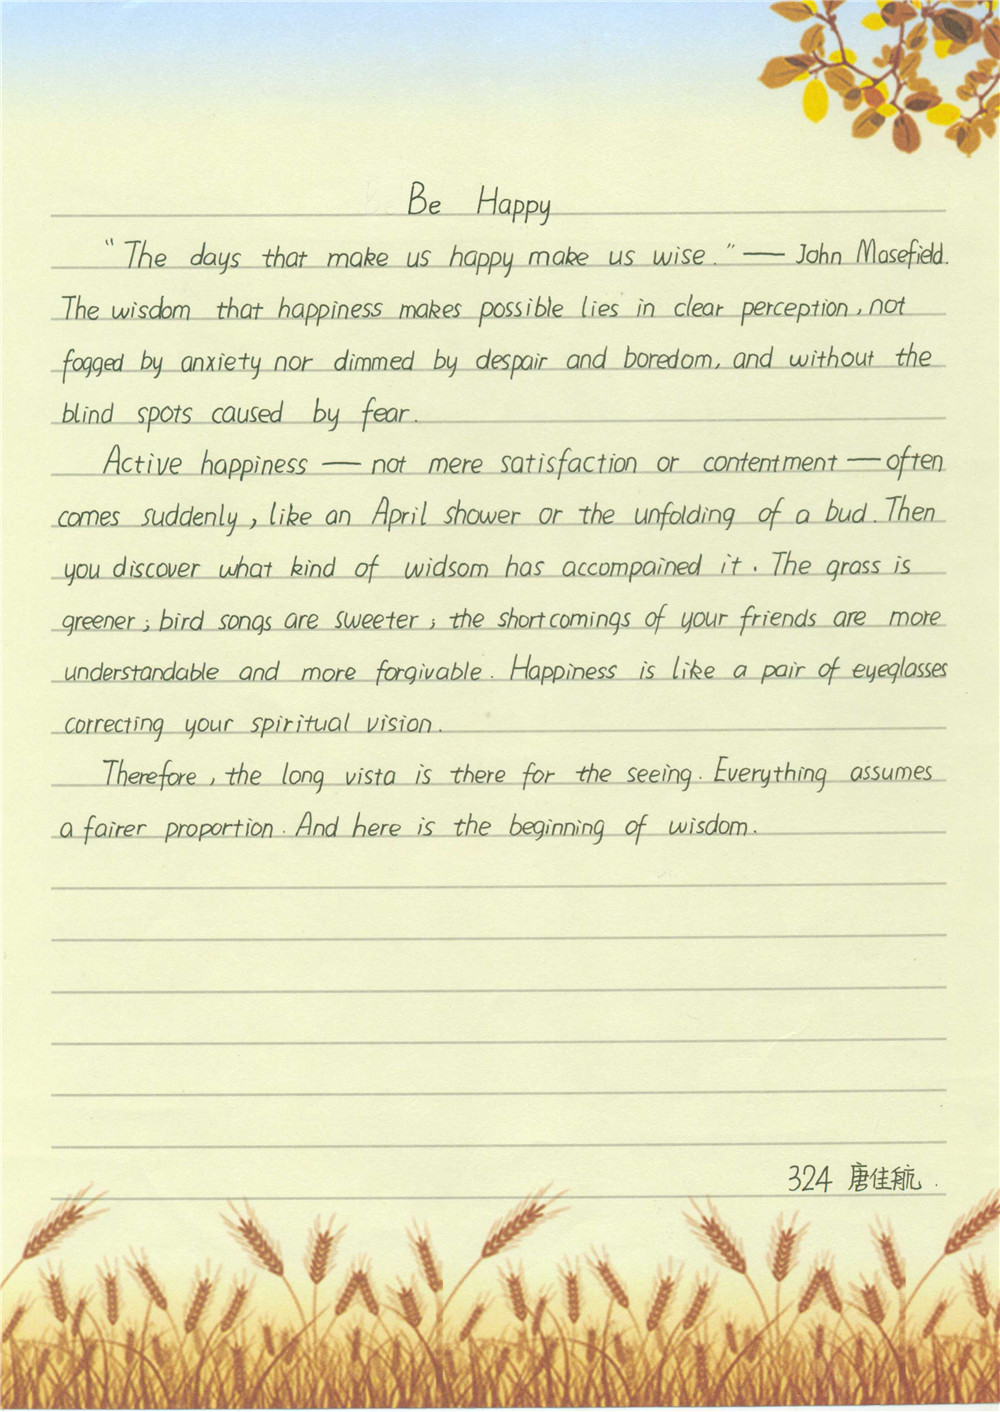 Be Happy
"The days that make us happy make us wise." — John Masefield.
The wisdom that happiness makes possible lies in clear perception, not
fogged by anxiety nor dimmed by despair and boredom, and without the
blind spots caused by fear.
Active happiness — not mere satisfaction or contentment — often
comes suddenly, like an April shower or the unfolding of a bud. Then
you discover what kind of widsom has accompained it. The grass is
greener; bird songs are sweeter; the shortcomings of your friends are more
understandable and more forgivable. Happiness is like a pair of eyeglasses
correcting your spiritual vision.
Therefore, the long vista is there for the seeing. Everything assumes
a fairer proportion. And here is the beginning of wisdom.
324 唐佳航.